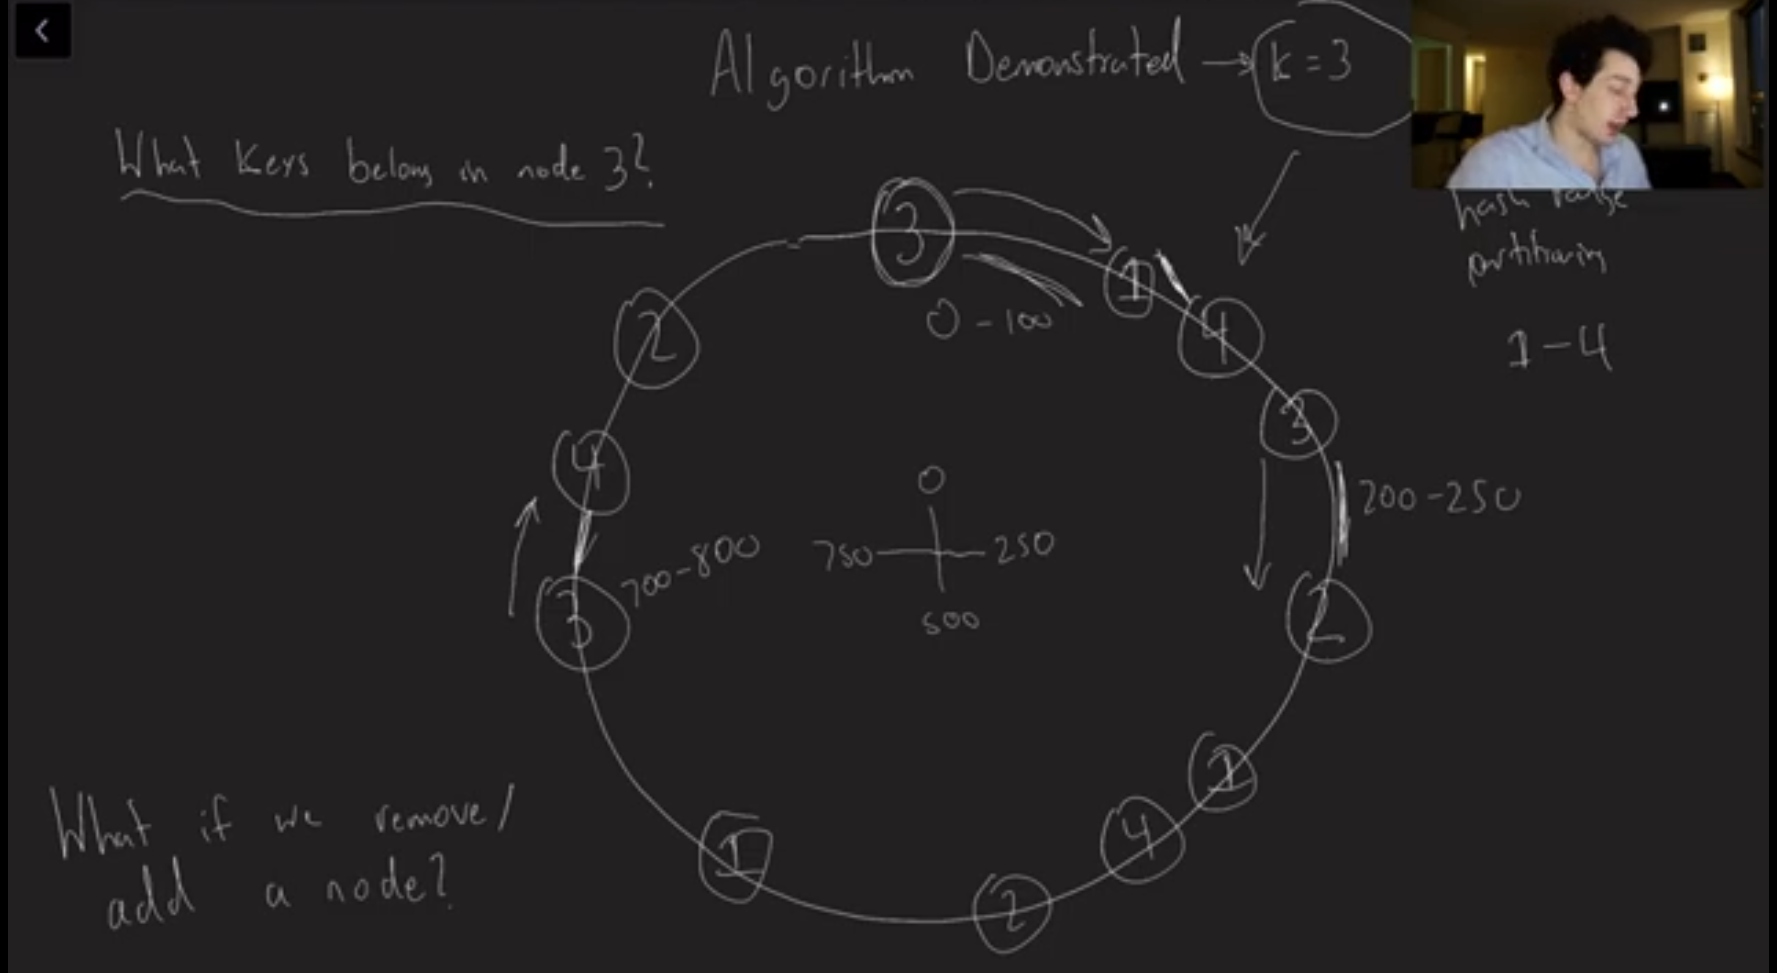 Algorithm Demonstrated → k = 3
What keys belong in node 3?
hash range
partitioning
1-4
3
1
4
3
2
1
4
2
1
3
4
2
0-100
200-250
700-800
0
750
250
500
What if we remove/
add a node?